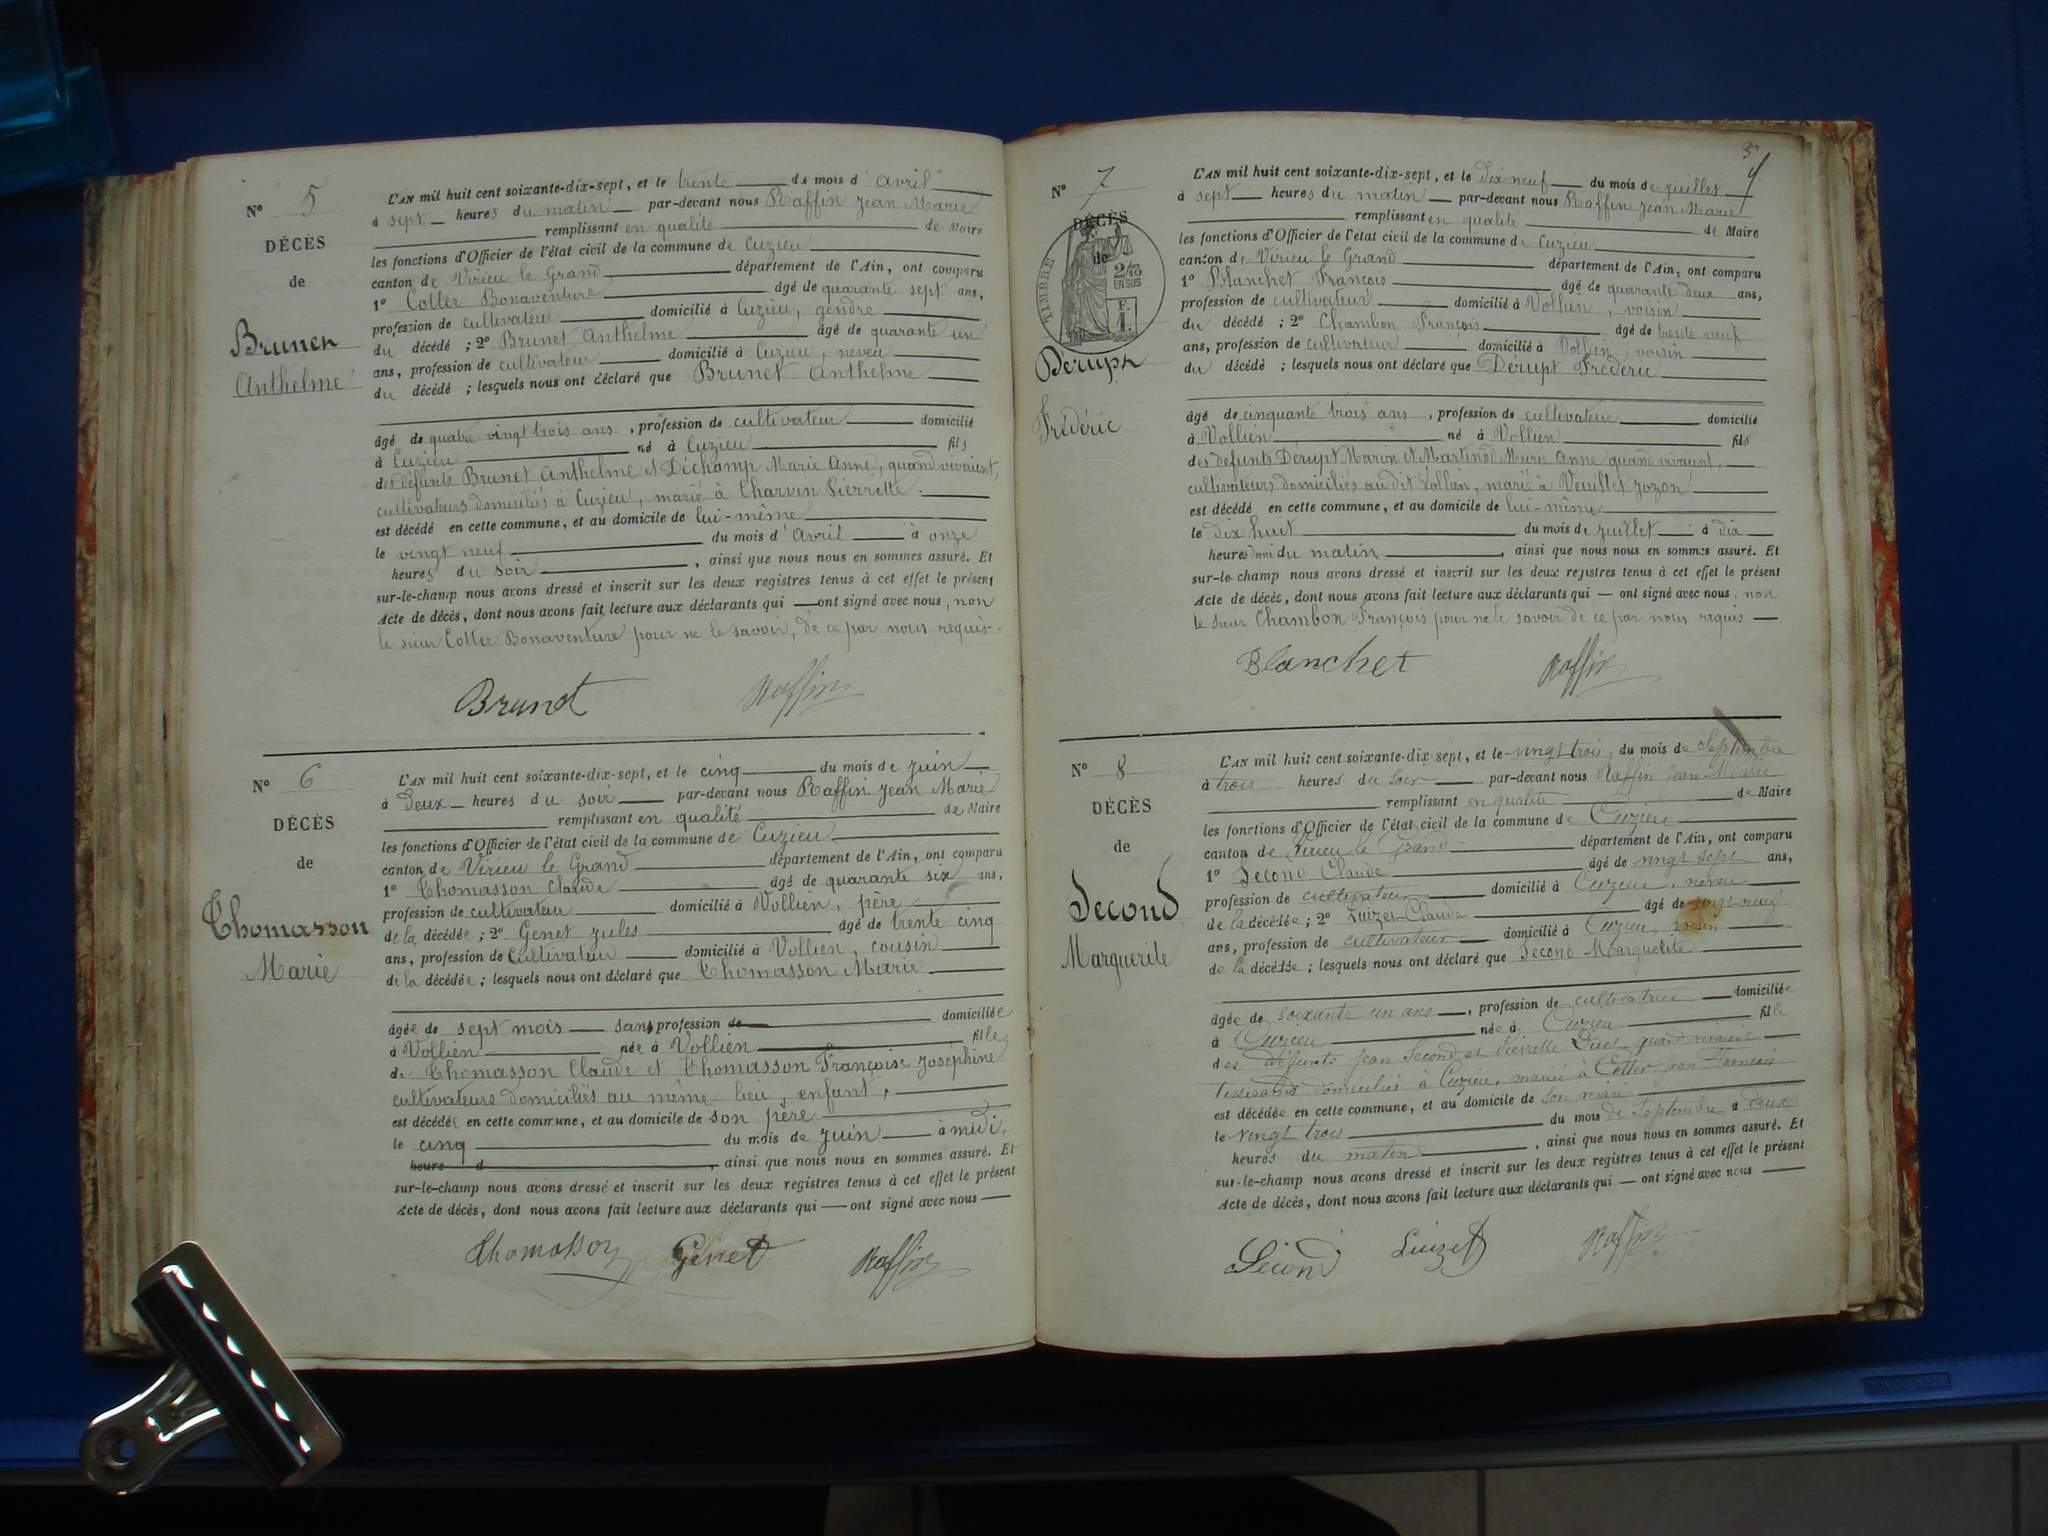 N° 5
DÉCÈS
de
Brunet
Anthelme
L'AN mil huit cent soixante-dix-sept, et le trente du mois d'avril
à sept heures du matin par-devant nous Raffin Jean Marie
remplissant en qualité de Maire
les fonctions d'Officier de l'état civil de la commune de Cuzieu
canton de Virieu le Grand département de l'Ain, ont comparu
1° Cotter Bonaventure âgé de quarante sept ans,
profession de cultivateur domicilié à Cuzieu, gendre
du décédé ; 2° Brunet Anthelme âgé de quarante un
ans, profession de cultivateur domicilié à Cuzieu, neveu
du décédé ; lesquels nous ont déclaré que Brunet Anthelme
âgé de quatre vingt trois ans, profession de cultivateur domicilié
à Cuzieu né à Cuzieu fils
des défunts Brunet Anthelme et Déchamp Marie Anne, quand vivaient,
cultivateurs domiciliés à Cuzieu, marié à Charvin Pierrette.
est décédé en cette commune, et au domicile de lui-même
le vingt neuf du mois d'avril à onze
heures du soir, ainsi que nous nous en sommes assuré. Et
sur-le-champ nous avons dressé et inscrit sur les deux registres tenus à cet effet le présent
Acte de décès, dont nous avons fait lecture aux déclarants qui ont signé avec nous, non
le sieur Cotter Bonaventure pour ne le savoir, de ce par nous requis.
Brunet Raffin
N° 6
DÉCÈS
de
Thomasson
Marie
L'AN mil huit cent soixante-dix-sept, et le cinq du mois de juin
à deux heures du soir par-devant nous Raffin Jean Marie
remplissant en qualité de Maire
les fonctions d'Officier de l'état civil de la commune de Cuzieu
canton de Virieu le Grand département de l'Ain, ont comparu
1° Thomasson Claude âgé de quarante six ans,
profession de cultivateur domicilié à Vollien, père
de la décédée ; 2° Genet Jules âgé de trente cinq
ans, profession de cultivateur domicilié à Vollien, cousin
de la décédée ; lesquels nous ont déclaré que Thomasson Marie
âgée de sept mois sans profession de domiciliée
à Vollien née à Vollien fille
de Thomasson Claude et Thomasson Françoise Joséphine
cultivateurs domiciliés au même lieu, enfant,
est décédée en cette commune, et au domicile de son père
le cinq du mois de juin à midi,
heure d, ainsi que nous nous en sommes assuré. Et
sur-le-champ nous avons dressé et inscrit sur les deux registres tenus à cet effet le présent
Acte de décès, dont nous avons fait lecture aux déclarants qui ont signé avec nous
Thomasson Genet Raffin
N° 7
DÉCÈS
de
TIMBRE
2/10
EN SUS
F.
1.
Dérupt
Frédéric
L'AN mil huit cent soixante-dix-sept, et le dix neuf du mois de juillet
à sept heures du matin par-devant nous Raffin Jean Marie
remplissant en qualité de Maire
les fonctions d'Officier de l'état civil de la commune de Cuzieu
canton de Virieu le Grand département de l'Ain, ont comparu
1° Blanchet François âgé de quarante deux ans,
profession de cultivateur domicilié à Vollien, voisin
du décédé ; 2° Chambon François âgé de trente neuf
ans, profession de cultivateur domicilié à Vollien, voisin
du décédé ; lesquels nous ont déclaré que Dérupt Frédéric
âgé de cinquante trois ans, profession de cultivateur domicilié
à Vollien né à Vollien fils
des défunts Dérupt et Martinod Marie Anne quand vivaient,
cultivateurs domiciliés au dit Vollien, marié à Veuillet
est décédé en cette commune, et au domicile de lui-même
le dix huit du mois de juillet à dix
heures demi du matin, ainsi que nous nous en sommes assuré. Et
sur-le-champ nous avons dressé et inscrit sur les deux registres tenus à cet effet le présent
Acte de décès, dont nous avons fait lecture aux déclarants qui ont signé avec nous, non
le sieur Chambon François pour ne le savoir de ce par nous requis
Blanchet Raffin
N° 8
DÉCÈS
de
Second
Marguerite
L'AN mil huit cent soixante-dix-sept, et le vingt trois du mois de Septembre
à trois heures du soir par-devant nous Raffin Jean Marie
remplissant en qualité de Maire
les fonctions d'Officier de l'état civil de la commune de Cuzieu
canton de Virieu le Grand département de l'Ain, ont comparu
1° Second Claude âgé de vingt sept ans,
profession de cultivateur domicilié à Cuzieu, neveu
de la décédée ; 2° Luizet Claude âgé de vingt neuf
ans, profession de cultivateur domicilié à Cuzieu, voisin
de la décédée ; lesquels nous ont déclaré que Second Marguerite
âgée de soixante un ans, profession de cultivatrice domiciliée
à Cuzieu née à Cuzieu fille
des défunts Jean Second et Pierrette quand vivaient
tisserands domiciliés à Cuzieu, mariée à Cotter Jean François
est décédée en cette commune, et au domicile de son mari
le vingt trois du mois de Septembre à deux
heures du matin, ainsi que nous nous en sommes assuré. Et
sur-le-champ nous avons dressé et inscrit sur les deux registres tenus à cet effet le présent
Acte de décès, dont nous avons fait lecture aux déclarants qui ont signé avec nous
Second Luizet Raffin